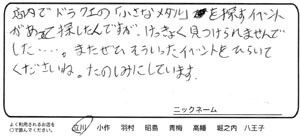 店内でドラクエの「小さなメダル」を探すイベント
があって探したんですが、けっきょく見つけられませんで
した・・・・。またぜひそういったイベントをひらいて
くださいね。たのしみにしています。
ニックネーム
よく利用されるお店を
○で囲んでください。
立川 小作 羽村 昭島 青梅 高幡 堀之内 八王子